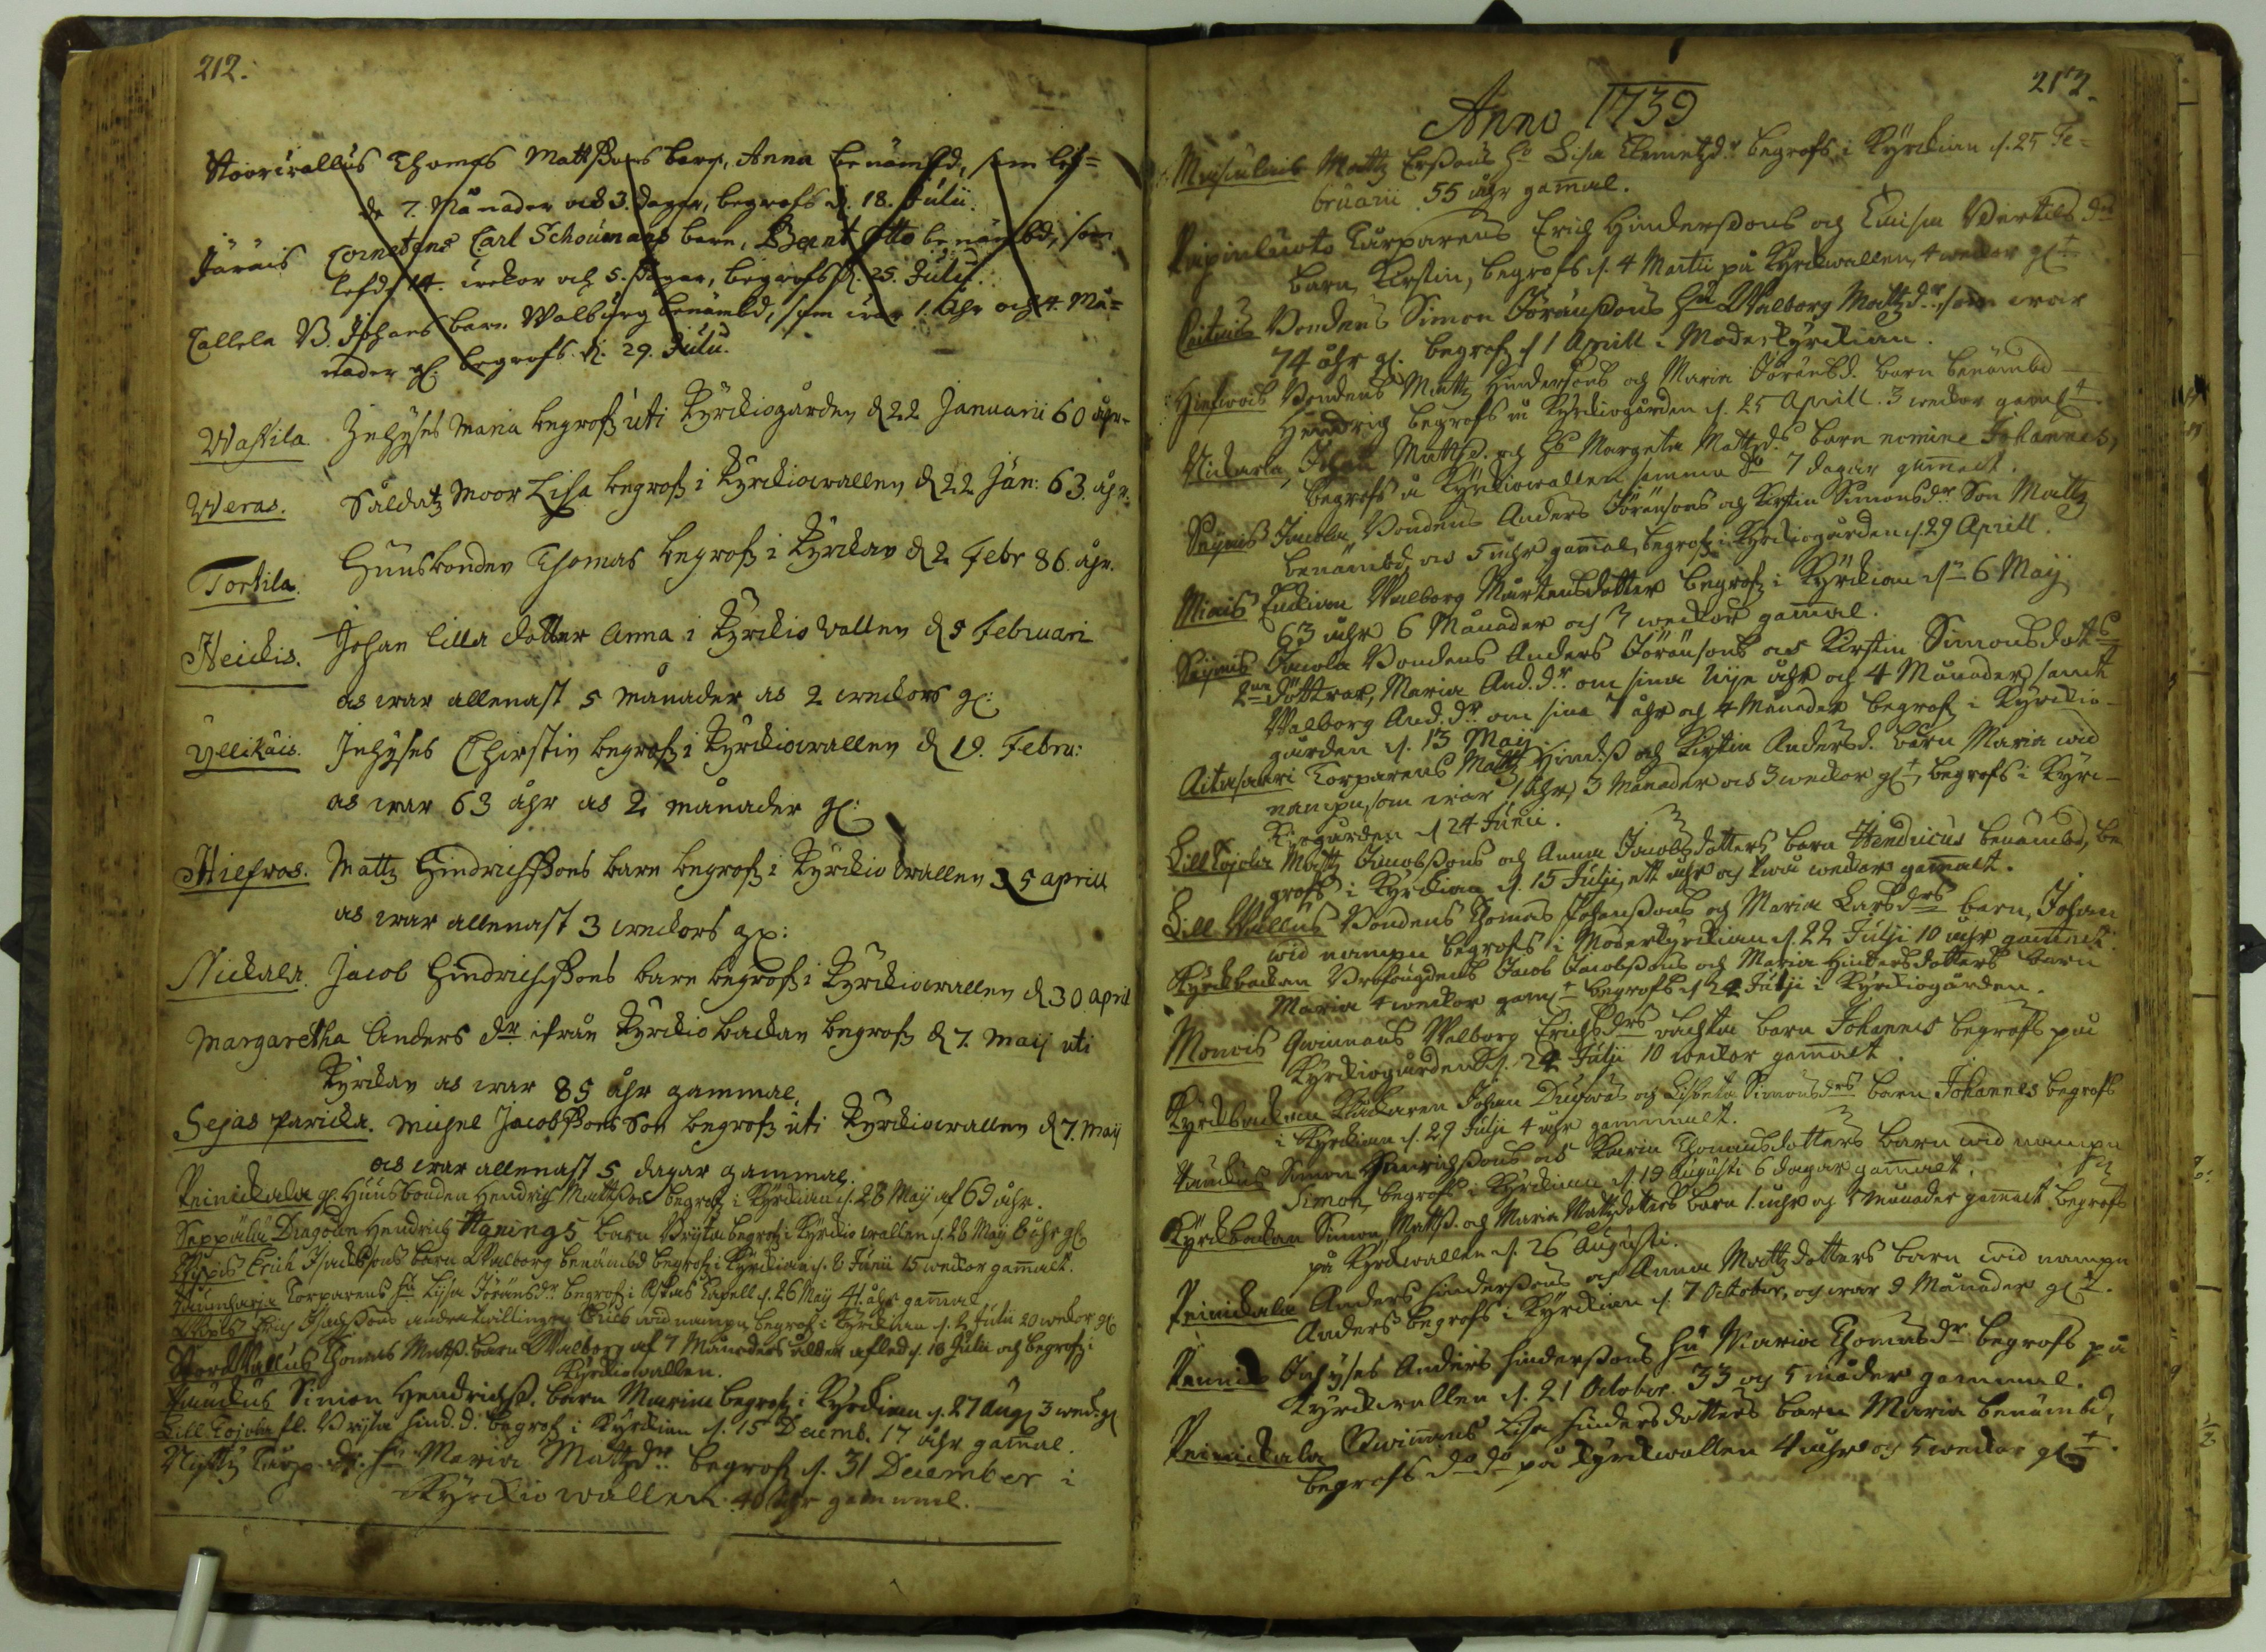 212.
Stoorwallus Thomas Mattssons barn, Anna benämbd, som lef=
de 7. Månader och 3. dagar, begrofs d. 18. Julii.
Järäis Cornetens Carl Schoumans barn, Berndt Otto benämbd, som
lefde 14. wekor och 5. dagar, begrofs d. 25. Julii.
Callela B. Johans barn Walborg benämbd, som war 1. åhr och 4. Må=
nader gl. begrofs d. 29. Julii.
Waskila Inhyses Maria begrofz uti Kyrckiogården d 22 Januarii 60 åhr.
Weras. Såldatz Moor Lisa begrofz i Kyrckiowallen d 22 Jan: 63. åhr.
Torkila. Huusbonden Thomas begrofz i Kyrckan d 2 Febr 86. åhr.
Heickis. Johan lilla dotter Anna i Kyrckio wallen d 5 Februari
as war allenast 5 månader as 2 weckors gl:
Yllikäis. Inhyses Chirstin begrofz i Kyrckiowallen d 19. Febru:
as war 63 åhr as 2 månader gl:
Hiefwas. Mattz Hindrichssons barn begrofz i Kyrckio wallen 25 aprill
as war allenast 3 weckors gl:
Nickala. Jacob Hindrichssons barn begrofz i Kyrckiowallen d 30 april
Margaretha Anders dr ifrån Kyrckio backan begrofz d 7. Maij uti
Kyrckan as war 85 åhr gammal.
Sejas paricka. Michel Jacobssons Son begrofz uti Kyrckiowallen d 7. Maij
as war allenast 5 dagar gammal.
Peinickala gl. Huusbonden Hendrich Mattsson begrofz i Kyrckian d. 28 Maij af 63 åhr.
Seppälä Dragoun Hendrich Agnings barn Brijta begrofz i Kyrckio wallen d. 28 Maij 6 åhr gl
Erich Isachssons barn Walborg benämbd begrofz i Kyrckian d. 6 Junii 15 weckor gamalt.
Torparens hu Lisa Jöransdr begrofz i Capell d. 26 Maij 41. åhr gamal
Erich Isachssons andra twilling wid nampn begrof i Kyrckian d. 2 Julii 20 weckor gl
Stoor Wallus Thomas Matss. barn Walborg af 7 Månaders ålder afled d. 16 Julii och begrofz i
Kyrckiowallen.
Pauckus Simon Hendrichss. barn Maria begrofz i Kyrckian d. 27 Aug 3 weck. gl
Lill Tojola fl. Brijta Hind. d. begrof i Kyrckian d. 15 Decemb. 17 åhr gamal.
hu Maria Mattzdr begrof d. 31 December i
Kyrckio wallen 40 åhr gammal.
213.
Anno 1739
Mattz Erssons hu Lisa Clemetzdr begrofs i Kyrckian d. 25 Fe=
bruarii 55 åhr gamal.
Torparens Erich Hinderssons och Bertils dr
barn, Kirstin, begrofs d. 4 Martii på Kyrckwallen, 4 weckor gl
Bondens Simon Jöranssons hu Walborg Mattzdr, som war
74 åhr gl. begrofz d 1 Aprill i Moderkyrckian.
Hiefwas Bondens Mattz Hinderssons och Maria Jöransd. barn benämbd
Hendrich begrofs på Kyrckiogården d. 25 Aprill. 3 weckor gaml.
Nickala, Johan Mattsd. och hu Margeta Mattsdr barn nomine Johannes,
begrofs å Kyrckiowallen samma do 7 dagar gamalt.
Seijais Jacola Bondens Anders Jöransons och Kirstin Simonsdr Son Mattz
benämbd, as 5 åhr gamal, begrofz i Kyrckiogården d. 29 Aprill.
Enckian Walborg Mårtensdotter begrofz i Kyrckian d 6 Maij
63 åhr 6 Månader och 3 weckor gamal.
Seijais Jacola Bondens Anders Jöransons as Kirstin Simonsdots
2ne döttrar, Maria And. dr. om sina nije åhr och 4 Månader, samt
Walborg And. dr om sina 7 åhr och 4 Månader begrof i Kyrckio-
gården d. 13 Maij.
Aitasaari Torparens Mattz Hindss och Kirstin Andersd. barn Maria wid
nampn, som war 1 åhr, 3 Månader as 3 weckor gl, begrofs i Kyrc-
kiogården d 24 Junii.
Lill Tojola Mattz Jacobssons och Anna Jacobsdotters barn Hendricus benämbd, be
grofz i Kyrckian d. 15 Julij, ett åhr och twå weckor gamalt.
Lill Wallus Bondens Thomas Johanssons och Maria Larsdrs barn, Johan
wid nampn begrofs i Moderkyrckian d. 22 Julji 10 åhr gamalt.
Kyrckbackan Jacob Jacobssons och Maria Hindersdotters barn
Maria 4 weckor gaml begrofs d 22 Julji i Kyrckiogården.
Monois Walborg Erichsdrs oächta barn Johannes begrofs på
Kyrckiogården d. 22 Julji 10 weckor gamalt.
Kyrckbackan Klåckaren Johan och Lisbeta Simonsdrs barn Johannes begrofs
i Kyrckian d. 29 Julji 4 åhr gammalt.
Pauckus Simon Hinrichssons as Karin Thomasdotters barn wid nampn
Simon, begrofs i Kyrckian d. 19 Augusti 6 dagar gamalt.
Kyrckbackan Simon Mattss. och Maria Mattzdotters barn 1. åhr och 1 Månader gamalt begrofs
på Kyrckwallen d. 26 Augusti.
Peinickala Anders Hinderssons och Anna Mattzdotters barn wid nampn
Anders begrofs i Kyrckian d. 7 October, och war 9 Månader gl.
Inhyses Anders Hinderssons hu Maria Thomasdr begrofs på
Kyrckwallen d. 21 October. 33 och 5 måder gammal.
Peinickala Lisa Hindersdotters barn Maria benämbd,
begrofs do do på Kyrckwallen 4 åhr och 5 weckor gl.